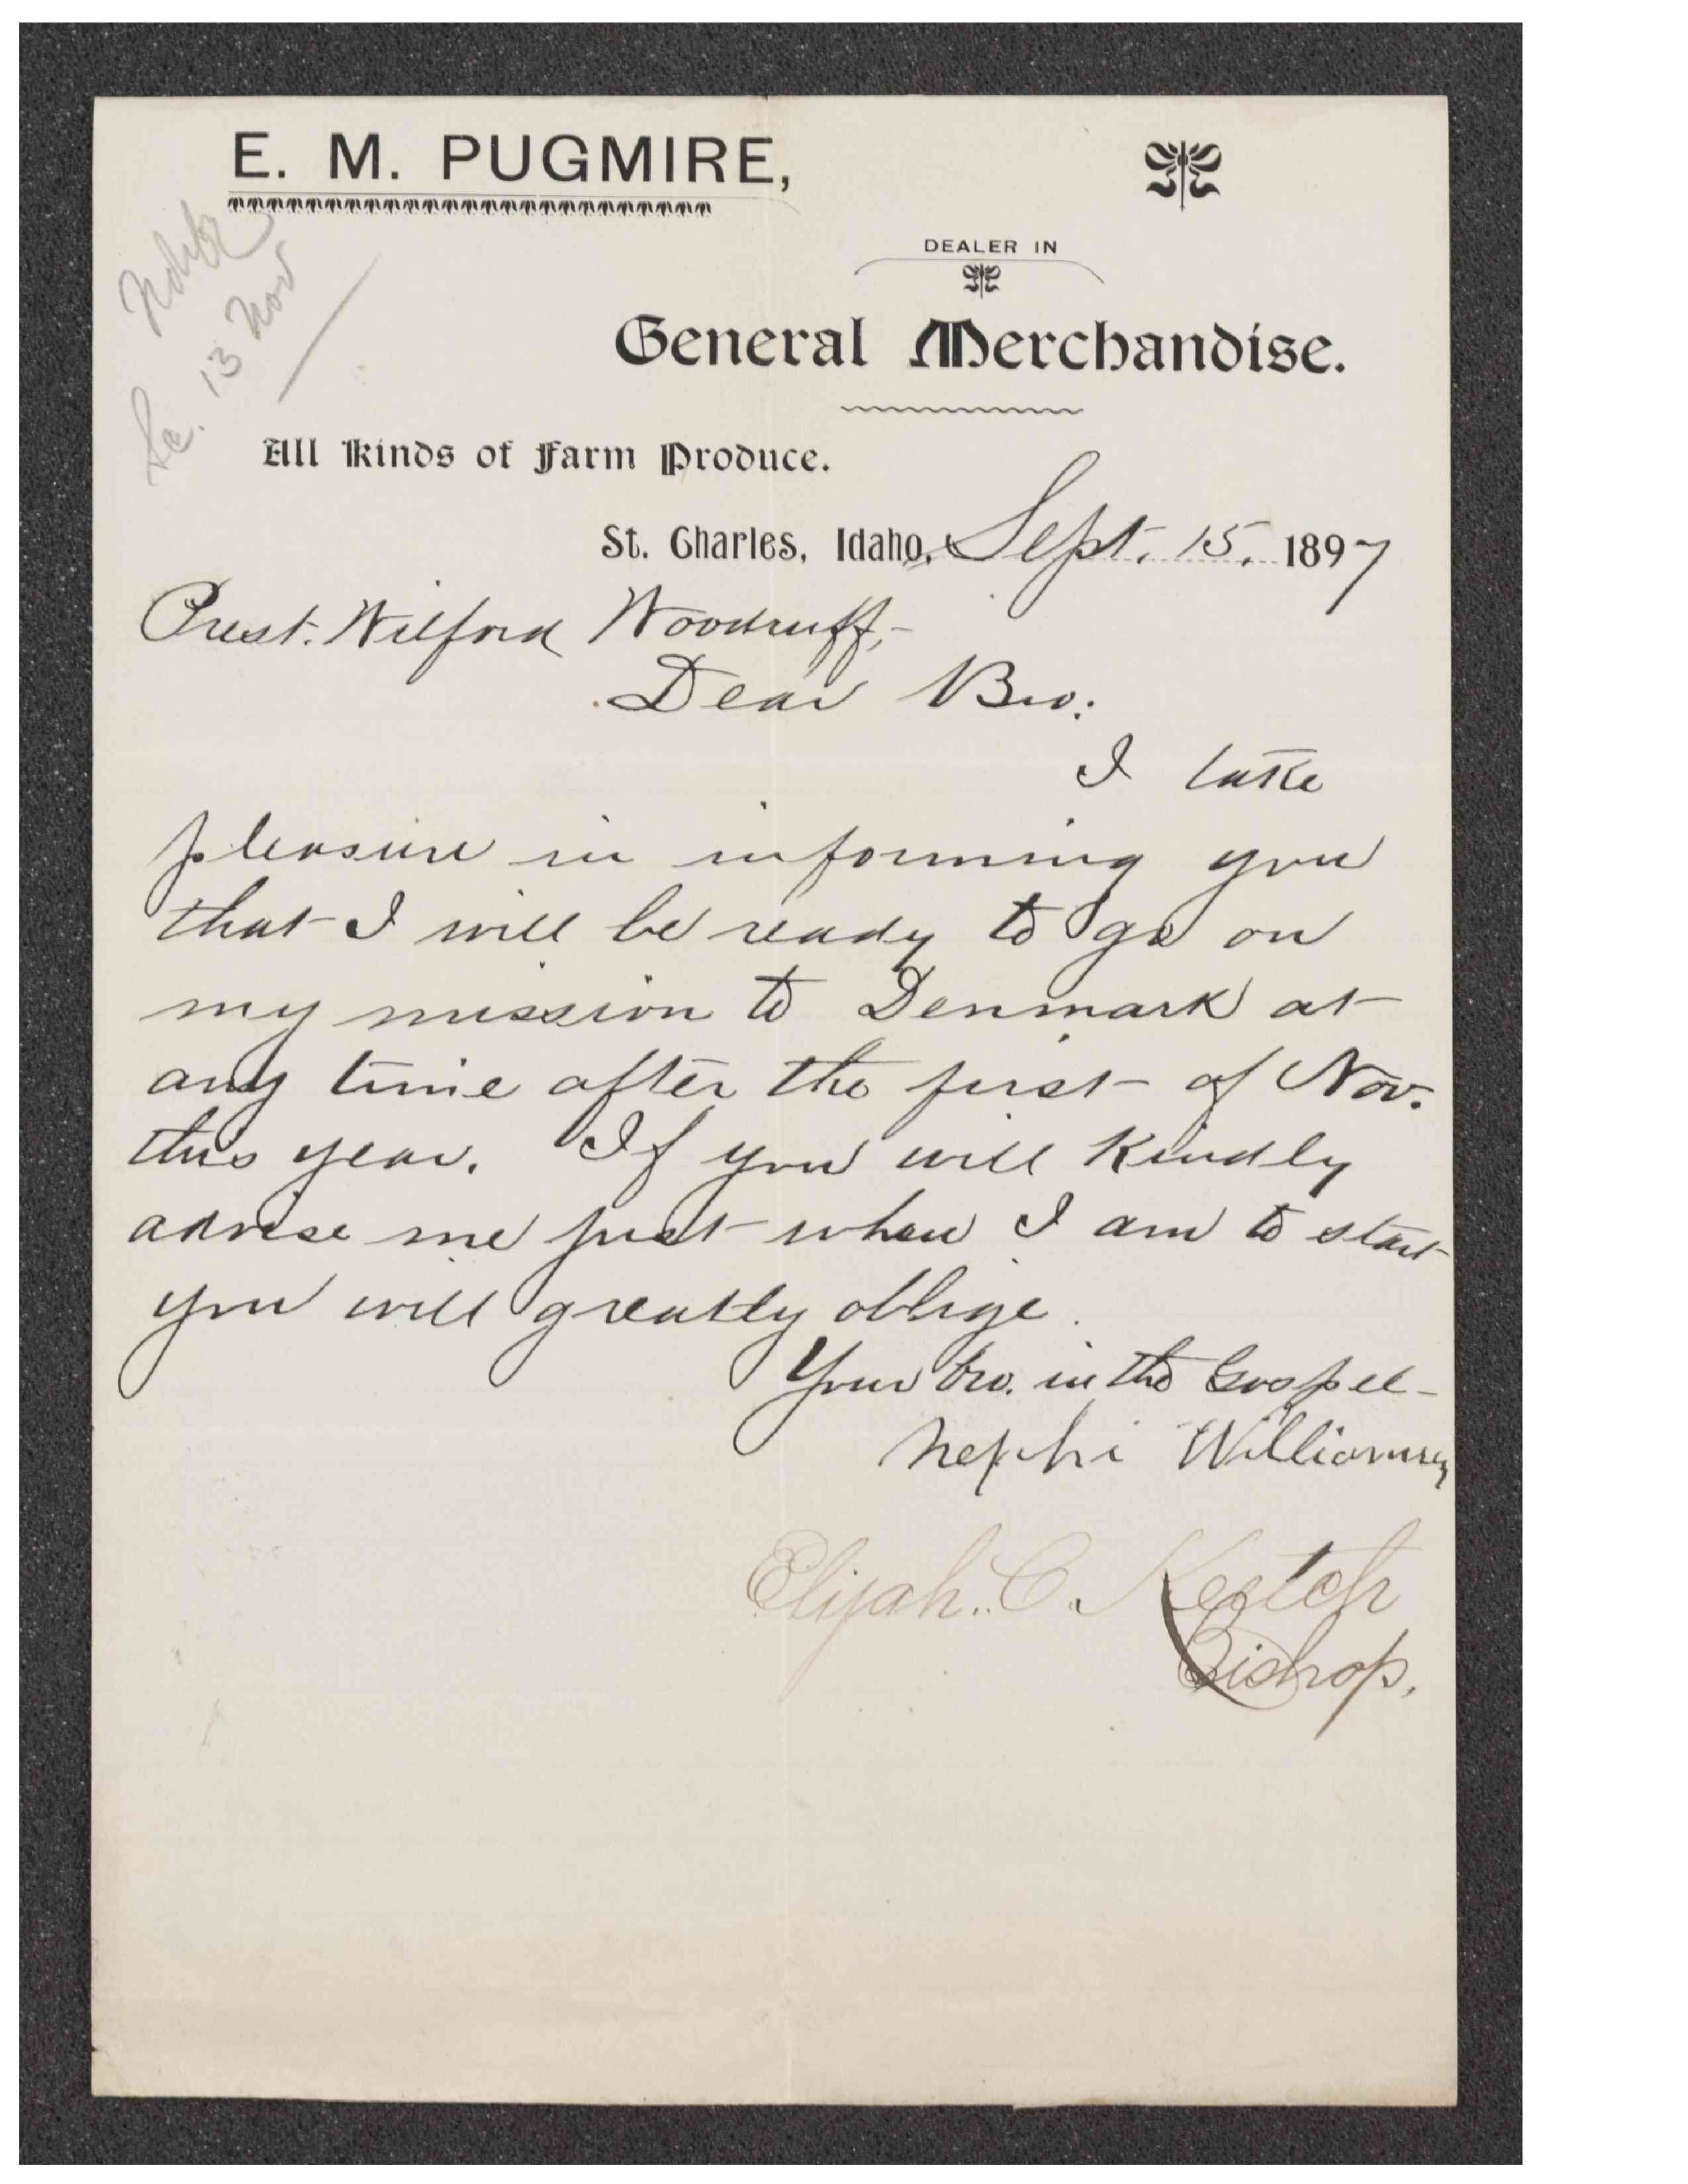 E. M. PUGMIRE,
DEALER IN
General Merchandise.
All Kinds of Farm Produce.
13 Nov
St. Charles, Idaho, Sept. 15. 1897
Prest. Wilford Woodruff,-
Dear Bro:
I take
pleasure in informing you
that I will be ready to go on
my mission to Denmark at
any time after the first of Nov.
this year. If you will kindly
advise me just when I am to start
you will greatly oblige.
Your bro. in the Gospel-
Nephi Williamsen
Elijah. C. Keetch
Bishop.